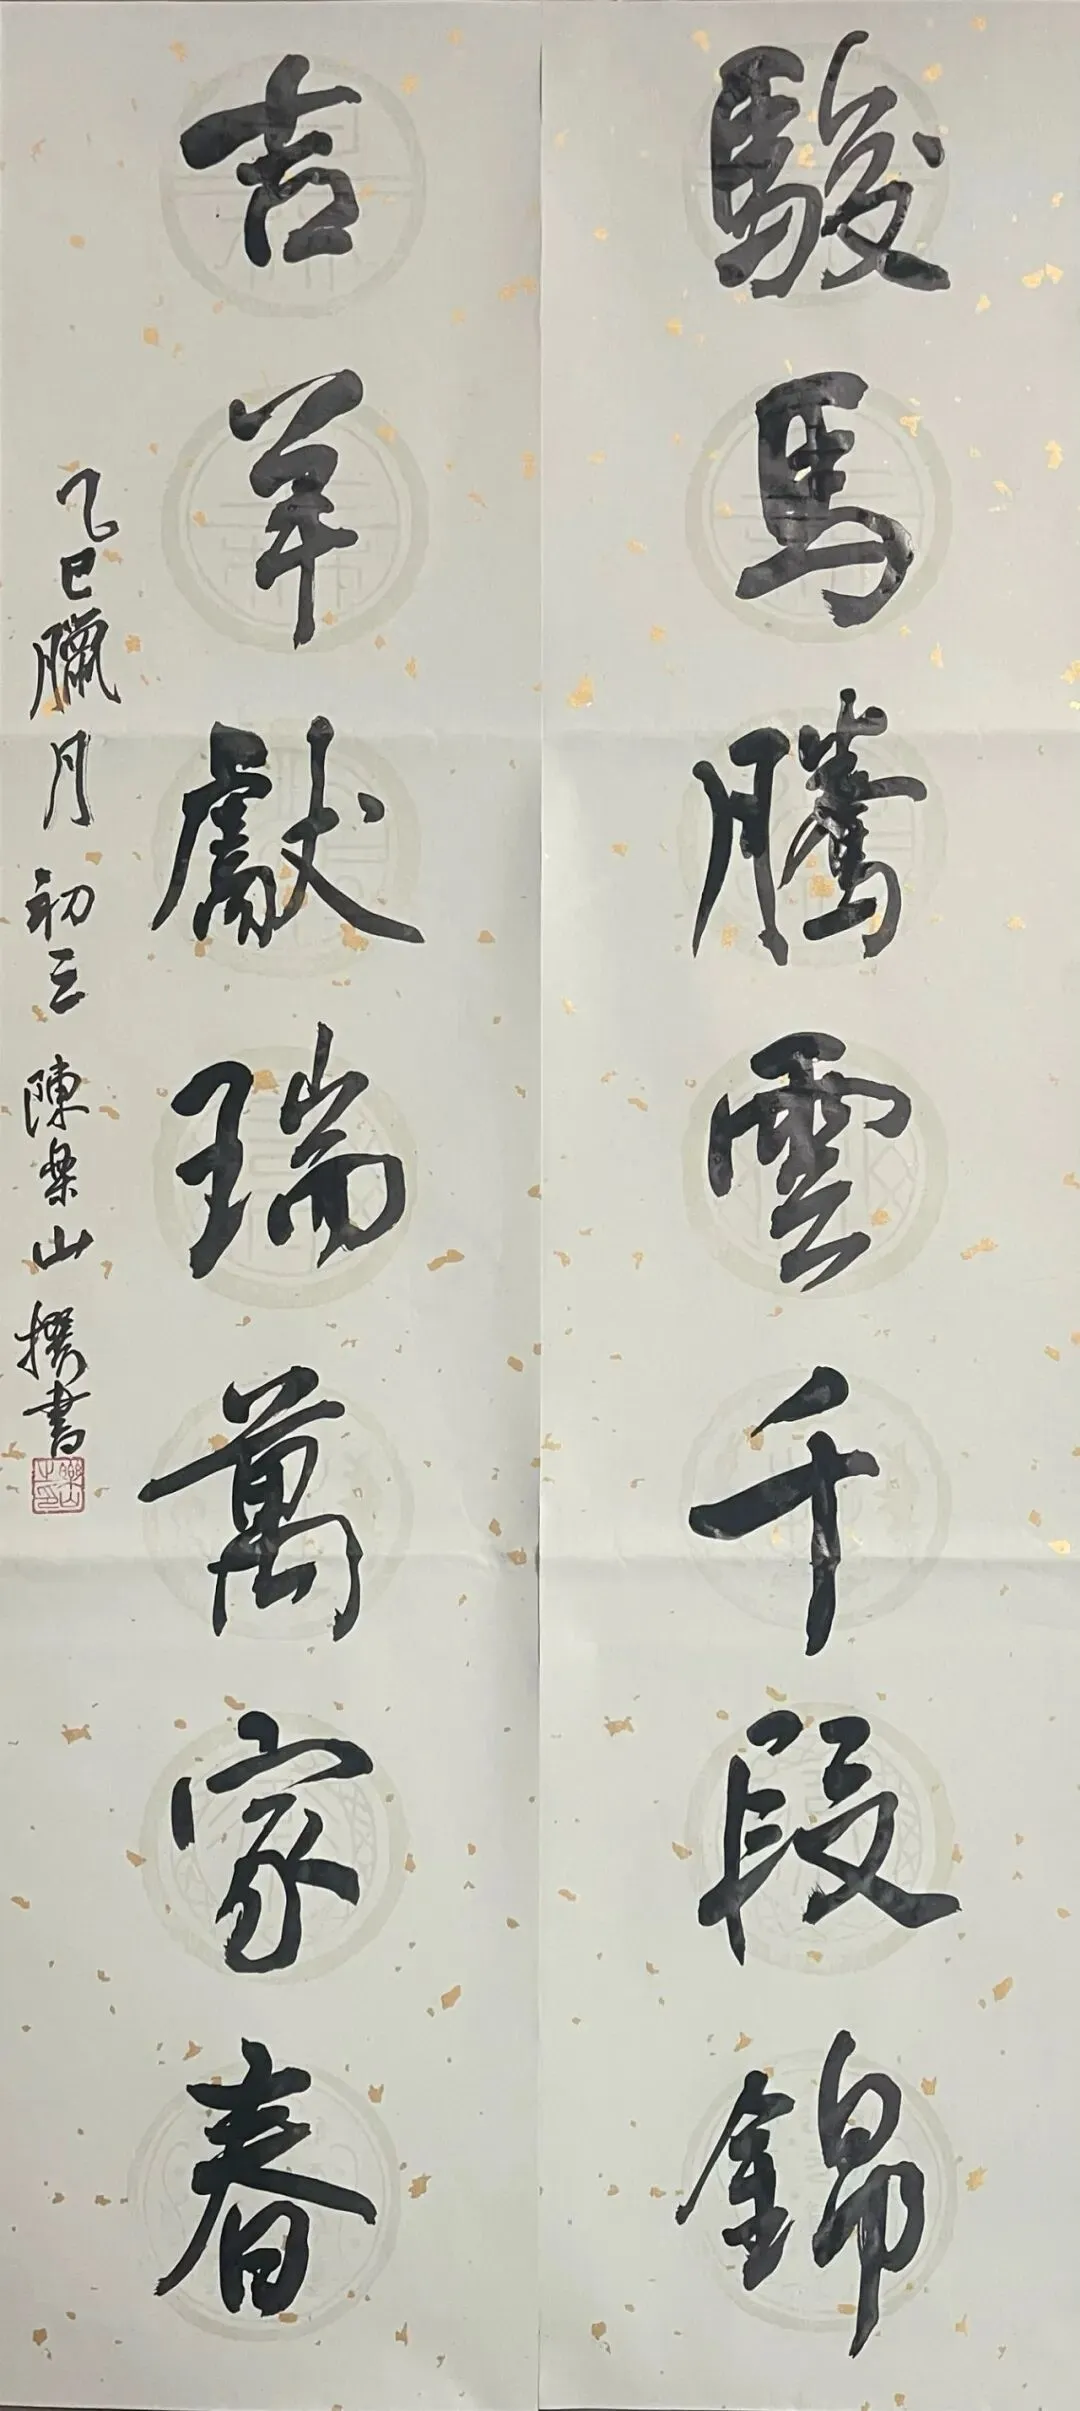 駿馬騰雲千段錦
吉羊獻瑞萬家春
乙巳臘月初三陳樂山撰書